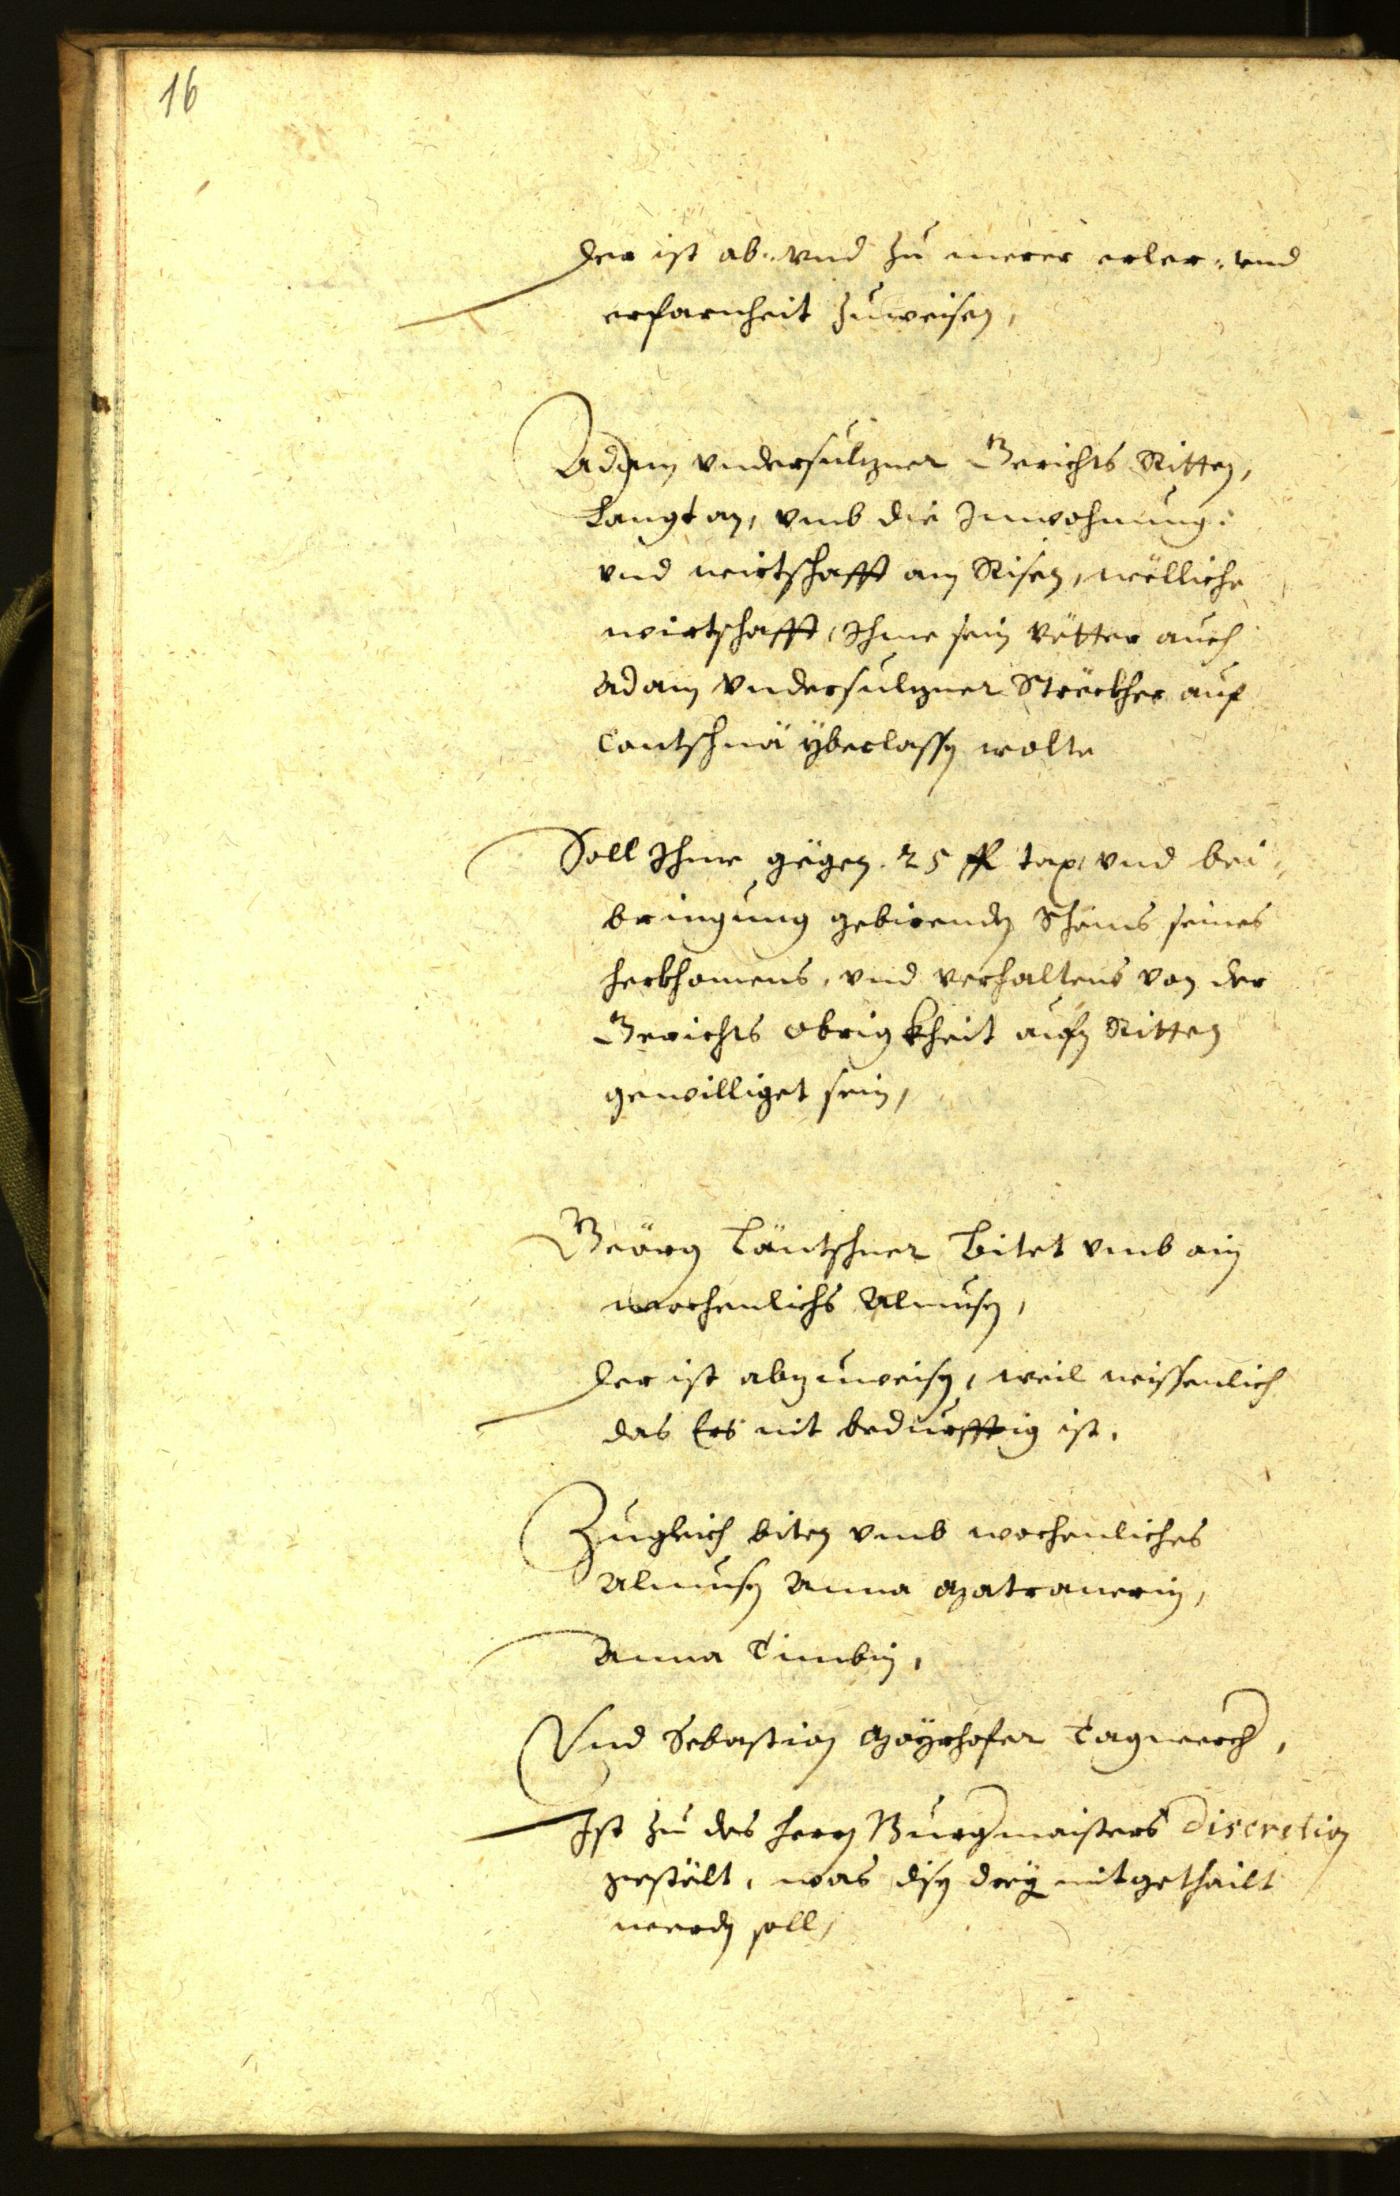 16
Der ist ab: vnd zu merer erler: vnd
erfarnheit zuweisen,
Adam Vndersulzner Gerichts Ritten,
langt an, vmb die Inwohnung:
vnd wirtschafft am Risen, wölliche
wirtschafft, Ihme sein Vötter auch
Adam Vndersulzner Ströckher auf
yberlassen wolte
Soll Ihme gegen 25 fl tax vnd bei,
bringung gebirenden Scheins seines
herkhomens, vnd verhaltens von der
Gerichts obrigkheit aufn Ritten
gewilliget sein,
Geörg Läntschner bitet vmb ain
wochenlichs Almusen,
Der ist abzuweisen, weil wissenlich
das Ers nit bedurfftig ist.
Zugleich biten vmb wochenliches
Almusen Anna Matranerin,
Anna Timblin,
Vnd Sebastian Mayrhofer Tagwercher,
Ist zu des herrn Burgmaisters Discretion
gestölt, was disen drey mitgethailt
werden soll,